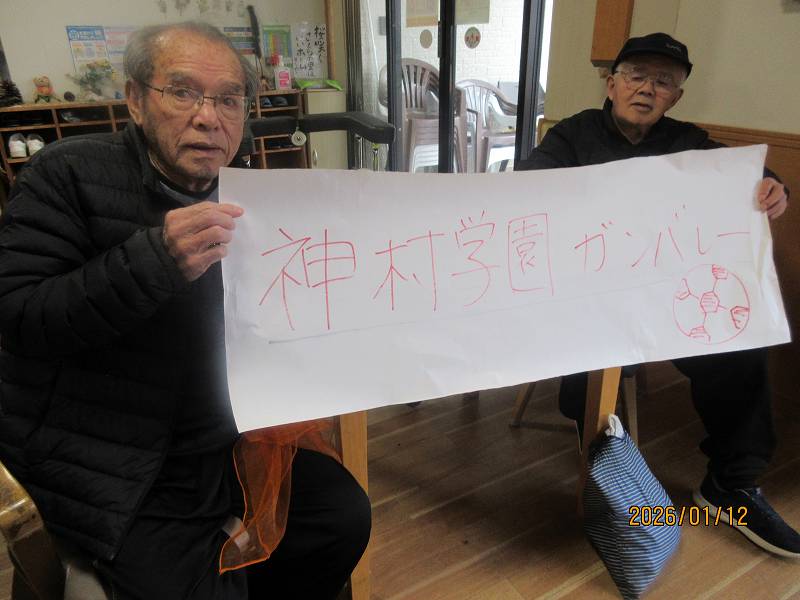 神村学園 ガンバレー
2026/01/12